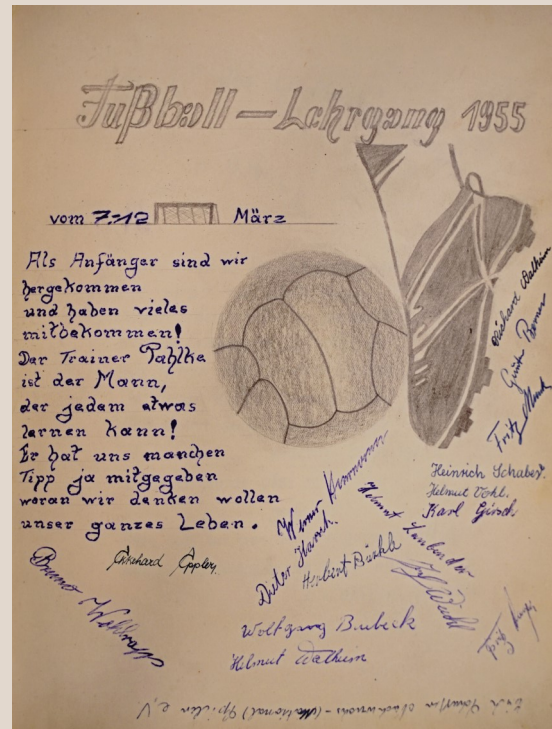 Fußball - Lehrgang 1955
vom 7.-12 März
Als Anfänger sind wir
hergekommen
und haben vieles
mitbekommen!
Der Trainer Pahlke
ist der Mann,
der jedem etwas
lernen kann!
Er hat uns manchen
Tipp ja mitgegeben
woran wir denken wollen
unser ganzes Leben.
Richard Walheim
Fritz
Heinrich Schaber.
Helmut Vohl.
Karl Girsch
Werner
Dieter Harsch.
Helmut
Herbert Bächle
Ekkehard Eppler,
Bruno
Wolfgang Bubeck
Helmut Walheim
Fritz